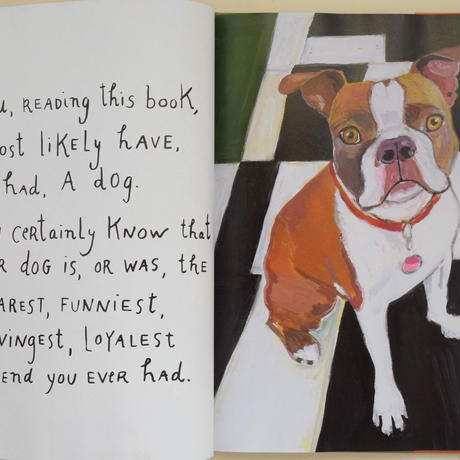 READING this book,
LIKELY HAVE,
had, A dog.
CERTAINLY KNOW that
dog is, OR WAS, the
FUNNIEST,
LOYALEST
you EVER had.